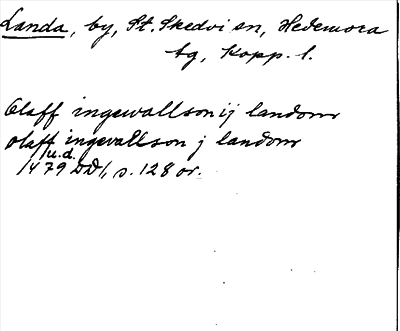 Landa, by, St. Skedvi sn, Hedemora
tg, Kopp. l.
Olaff ingewallson ij landom
olaff ingevallson j landom
u.d.
1479 DD1, s. 128 or.